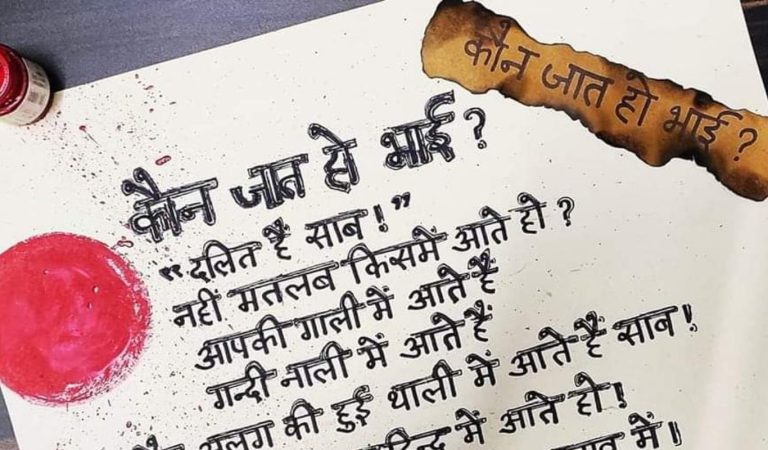 कौन जात हो भाई ?
कौन जात हो भाई ?
“दलित हैं साब !”
नहीं मतलब किसमें आते हो ?
आपकी गाली में आते हैं
गन्दी नाली में आते हैं
अलग की हुई थाली में आते हैं साब !
में आते हो !
में।